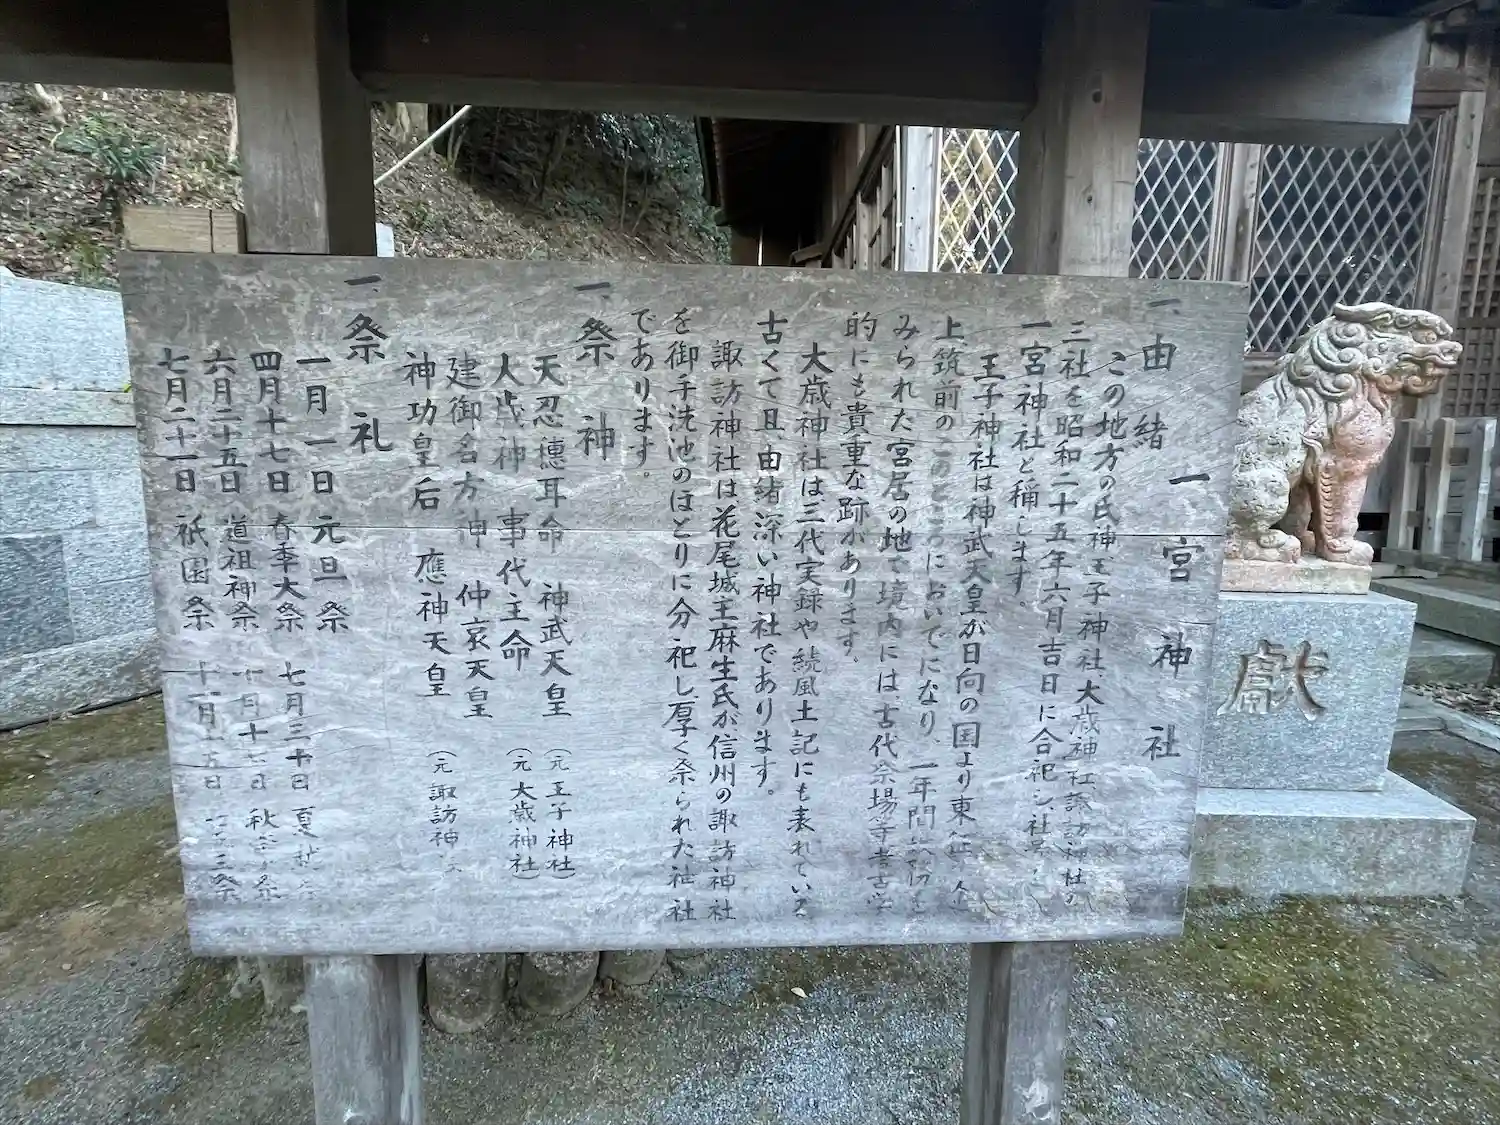 一宮神社
一、由緒
この地方の氏神王子神社、大歳神社、諏訪神社の
三社を昭和二十五年六月吉日に合祀し、社号を
一宮神社と稱します。
王子神社は神武天皇が日向の国より東征
上筑前のこのところにおいでになり、一年間
みられた宮居の地で境内には、古代祭場等考古学
的にも貴重な跡があります。
大歳神社は、三代実録や続風土記にも表れている
古くて且、由緒深い神社であります。
諏訪神社は、花尾城主麻生氏が信州の諏訪神社
を御手洗池のほとりに分祀し厚く祭られた神社
であります。
一、祭神
天忍穂耳命 神武天皇 (元王子神社)
大歳神 事代主命 (元大歳神社)
建御名方神 仲哀天皇
神功皇后 應神天皇 (元諏訪神社)
一、祭礼
一月一日 元旦祭 七月三十日 夏越祭
四月十七日 春季大祭 十月十七日 秋季大祭
六月二十五日 道祖神祭 十一月十五日 七五三祭
七月二十一日 祇園祭
献